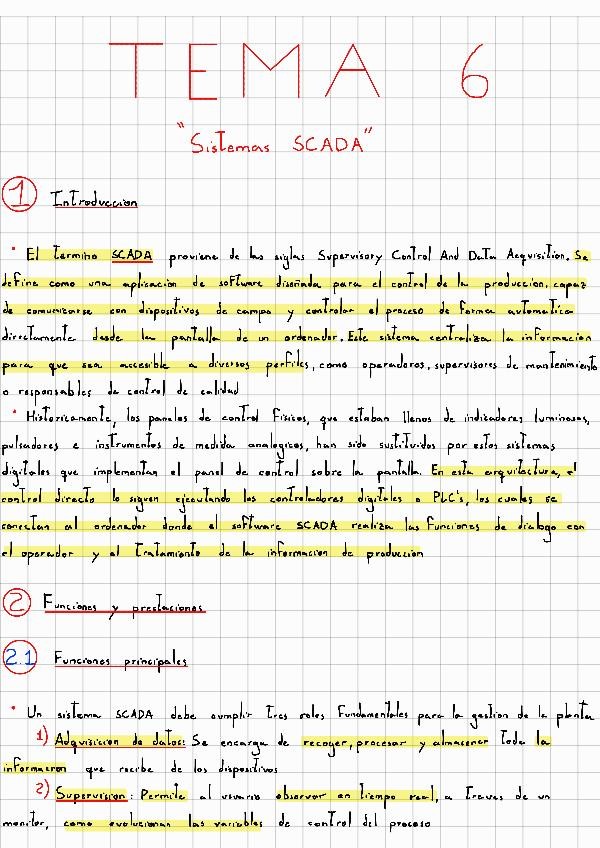 TEMA 6
"Sistemas SCADA"
1 Introduccion
· El termino SCADA proviene de las siglas Supervisory Control And Data Acquisition. Se
define como una aplicacion de software diseñada para el control de la produccion, capaz
de comunicarse con dispositivos de campo y controlar el proceso de forma automatica
directamente desde la pantalla de un ordenador. Este sistema centraliza la informacion
para que sea accesible a diversos perfiles, como operadores, supervisores de mantenimiento
o responsables de control de calidad
· Historicamente, los paneles de control fisicos, que estaban llenos de indicadores luminosos,
pulsadores e instrumentos de medida analogicos, han sido sustituidos por estos sistemas
digitales que implementan el panel de control sobre la pantalla. En esta arquitectura, el
control directo lo siguen ejecutando los controladores digitales o PLC's, los cuales se
conectan al ordenador donde el software SCADA realiza las funciones de dialogo con
el operador y el tratamiento de la informacion de produccion
2 Funciones y prestaciones
2.1 Funciones principales
· Un sistema SCADA debe cumplir tres roles fundamentales para la gestion de la planta
1) Adquisicion de datos: Se encarga de recoger, procesar y almacenar toda la
informacion que recibe de los dispositivos
2) Supervision: Permite al usuario observar en tiempo real, a traves de un
monitor, como evolucionan las variables de control del proceso